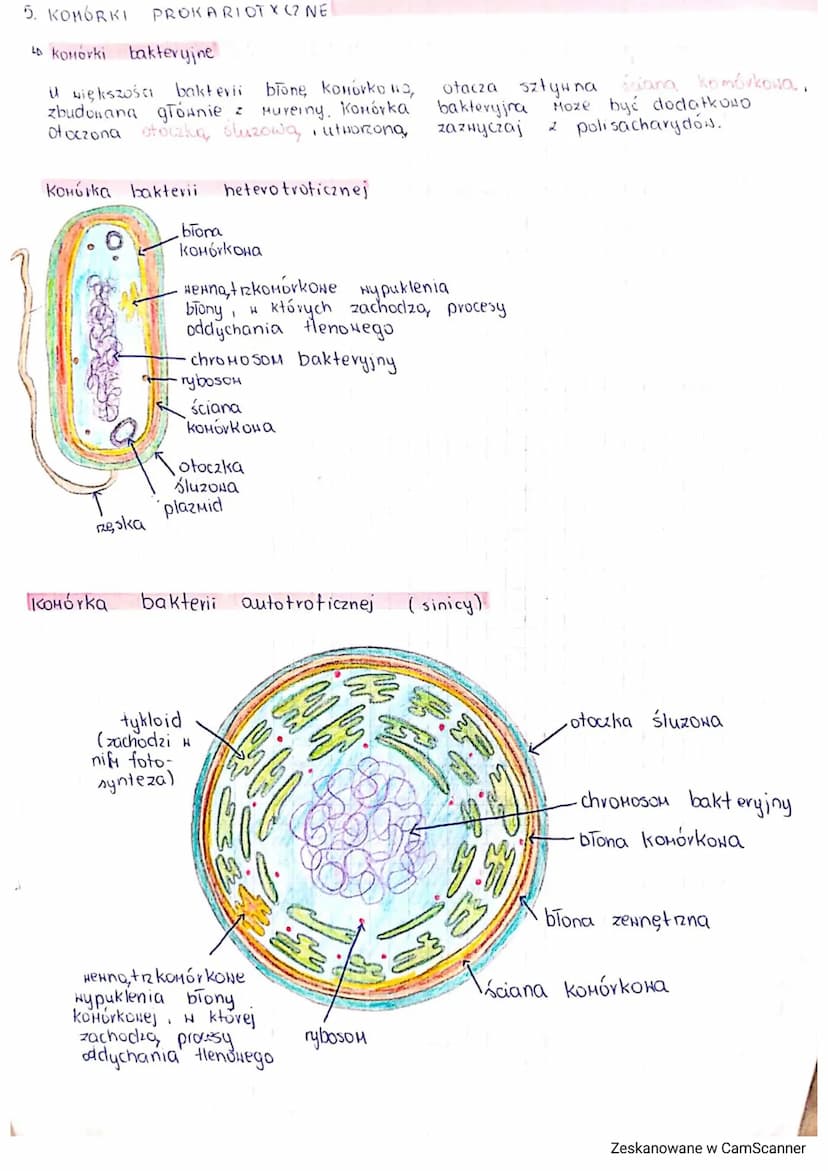 5. KOMÓRKI PROKARIOTYCZNE
↳ komórki bakteryjne
U większości bakterii błonę komórkową, otacza sztywna ściana komórkowa,
zbudowana głównie z mureiny. Komórka bakteryjna może być dodatkowo
otoczona otoczką śluzową, utworzoną zazwyczaj z polisacharydów.
Komórka bakterii heterotroficznej
błona
komórkowa
wewnątrzkomórkowe wypuklenia
błony, w których zachodzą procesy
oddychania tlenowego
chromosom bakteryjny
rybosom
ściana
komórkowa
otoczka
śluzowa
plazmid
rzęska
Komórka bakterii autotroficznej (sinicy)
tykloid
(zachodzi w
nim foto-
synteza)
otoczka śluzowa
chromosom bakteryjny
błona komórkowa
błona zewnętrzna
ściana komórkowa
wewnątrzkomórkowe
wypuklenia błony
komórkowej, w której
zachodzą procesy
oddychania tlenowego
rybosom
Zeskanowane w CamScanner